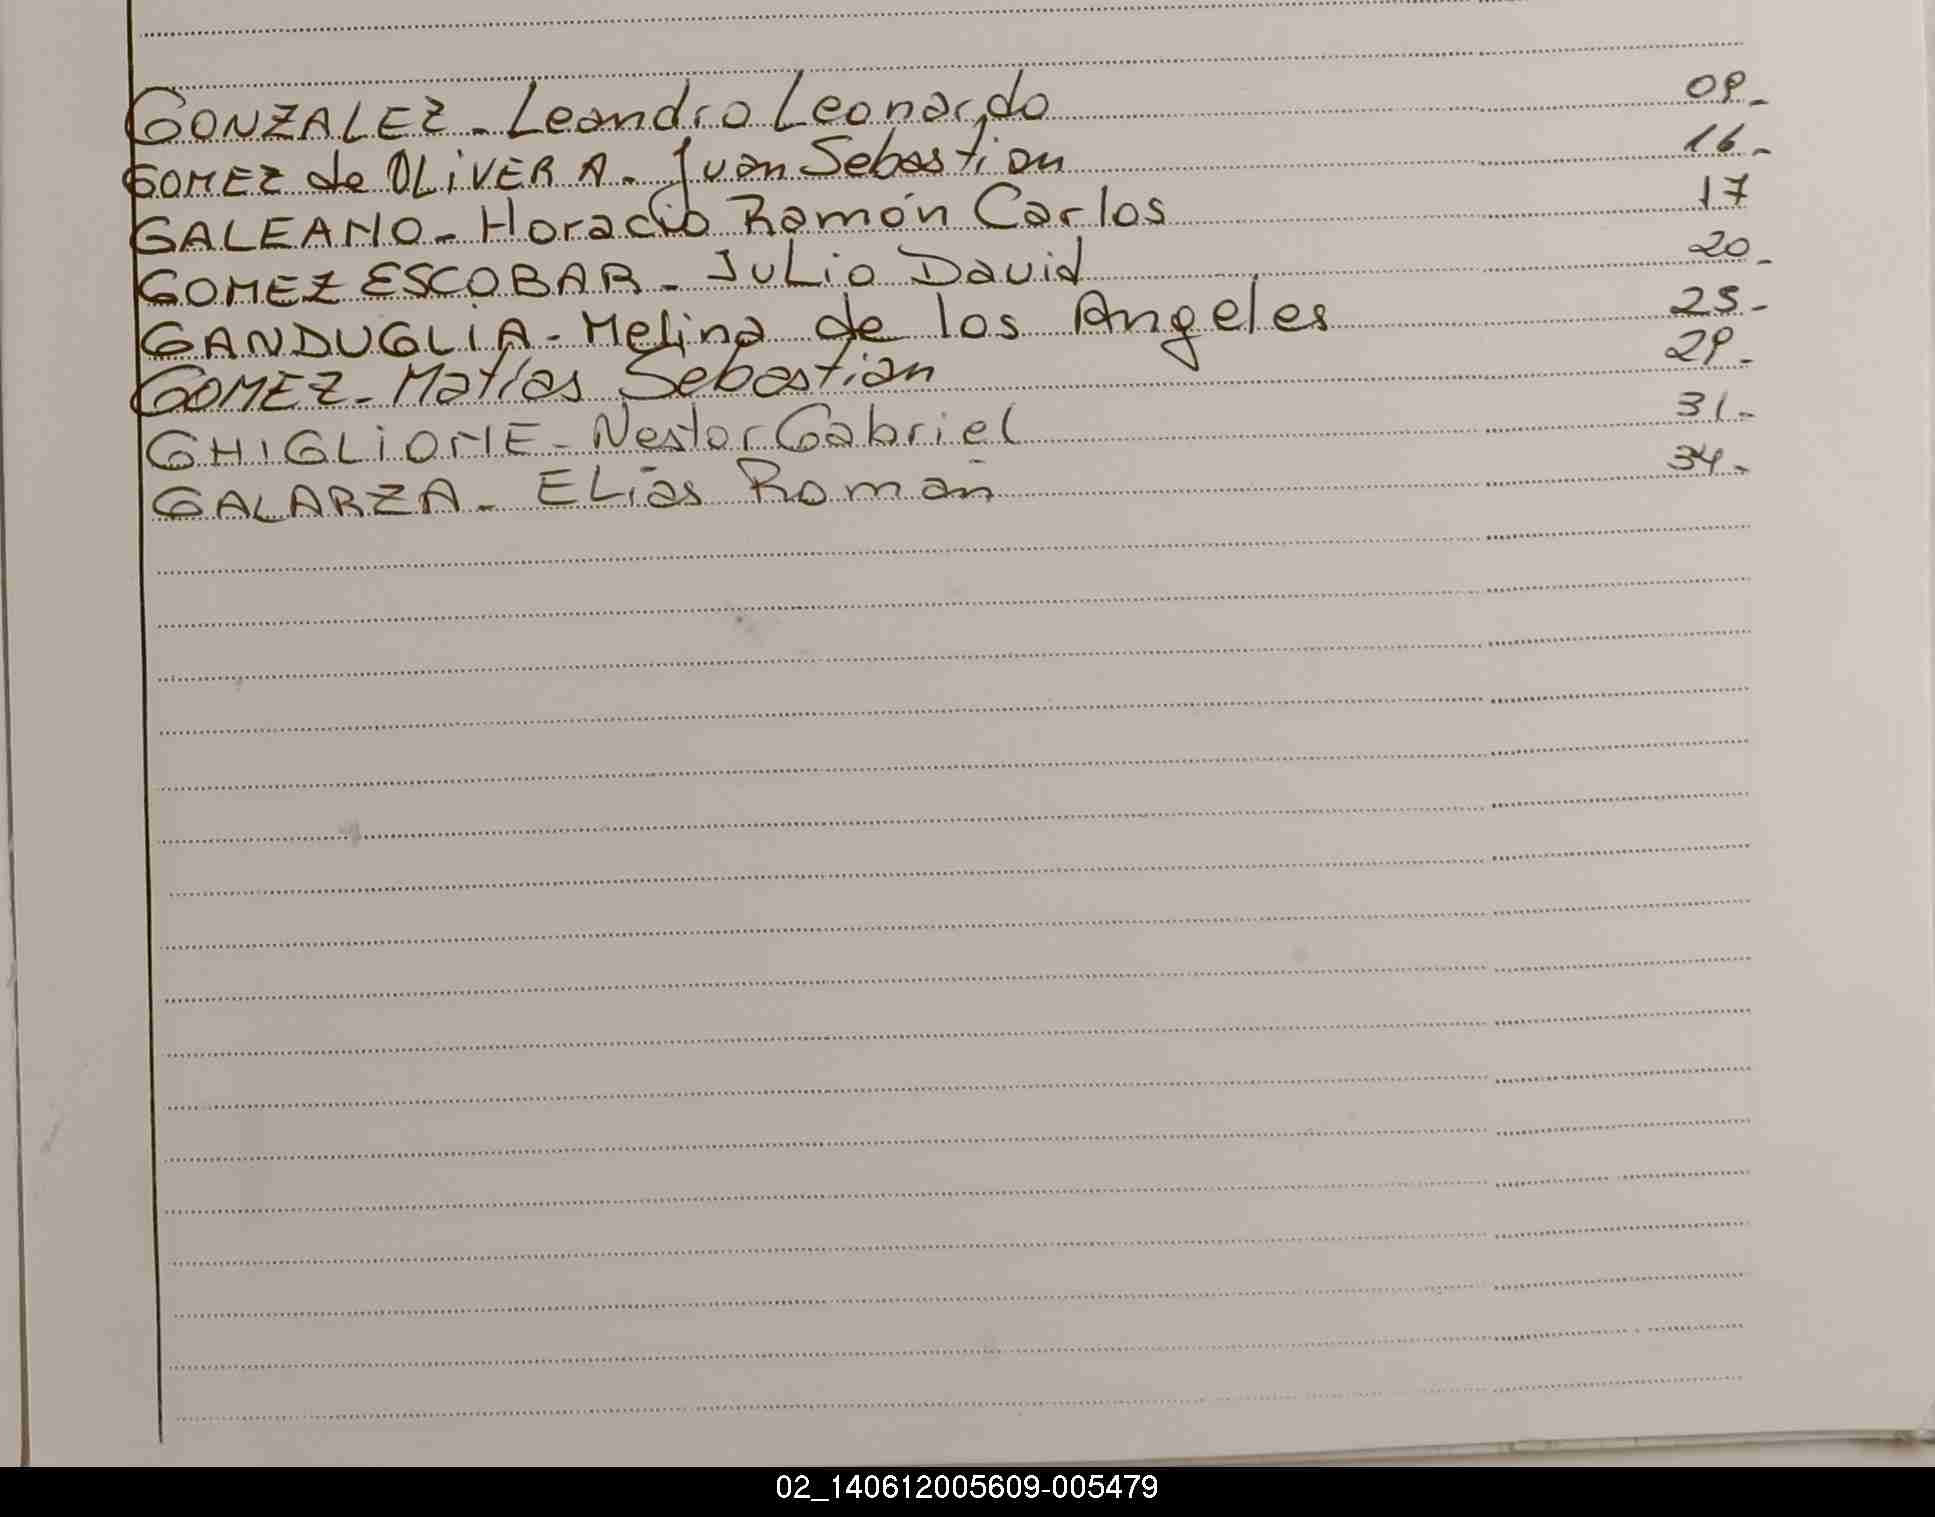 GONZALEZ - Leandro Leonardo 09-
GOMEZ de OLIVERA - Juan Sebastian 16-
GALEANO - Horacio Ramón Carlos 17
GOMEZ ESCOBAR - Julio David 20-
GANDUGLIA - Melina de los Angeles 25-
GOMEZ - Matías Sebastián 29-
GHIGLIONE - Nestor Gabriel 31-
GALARZA - Elías Román 34-
02_140612005609-005479